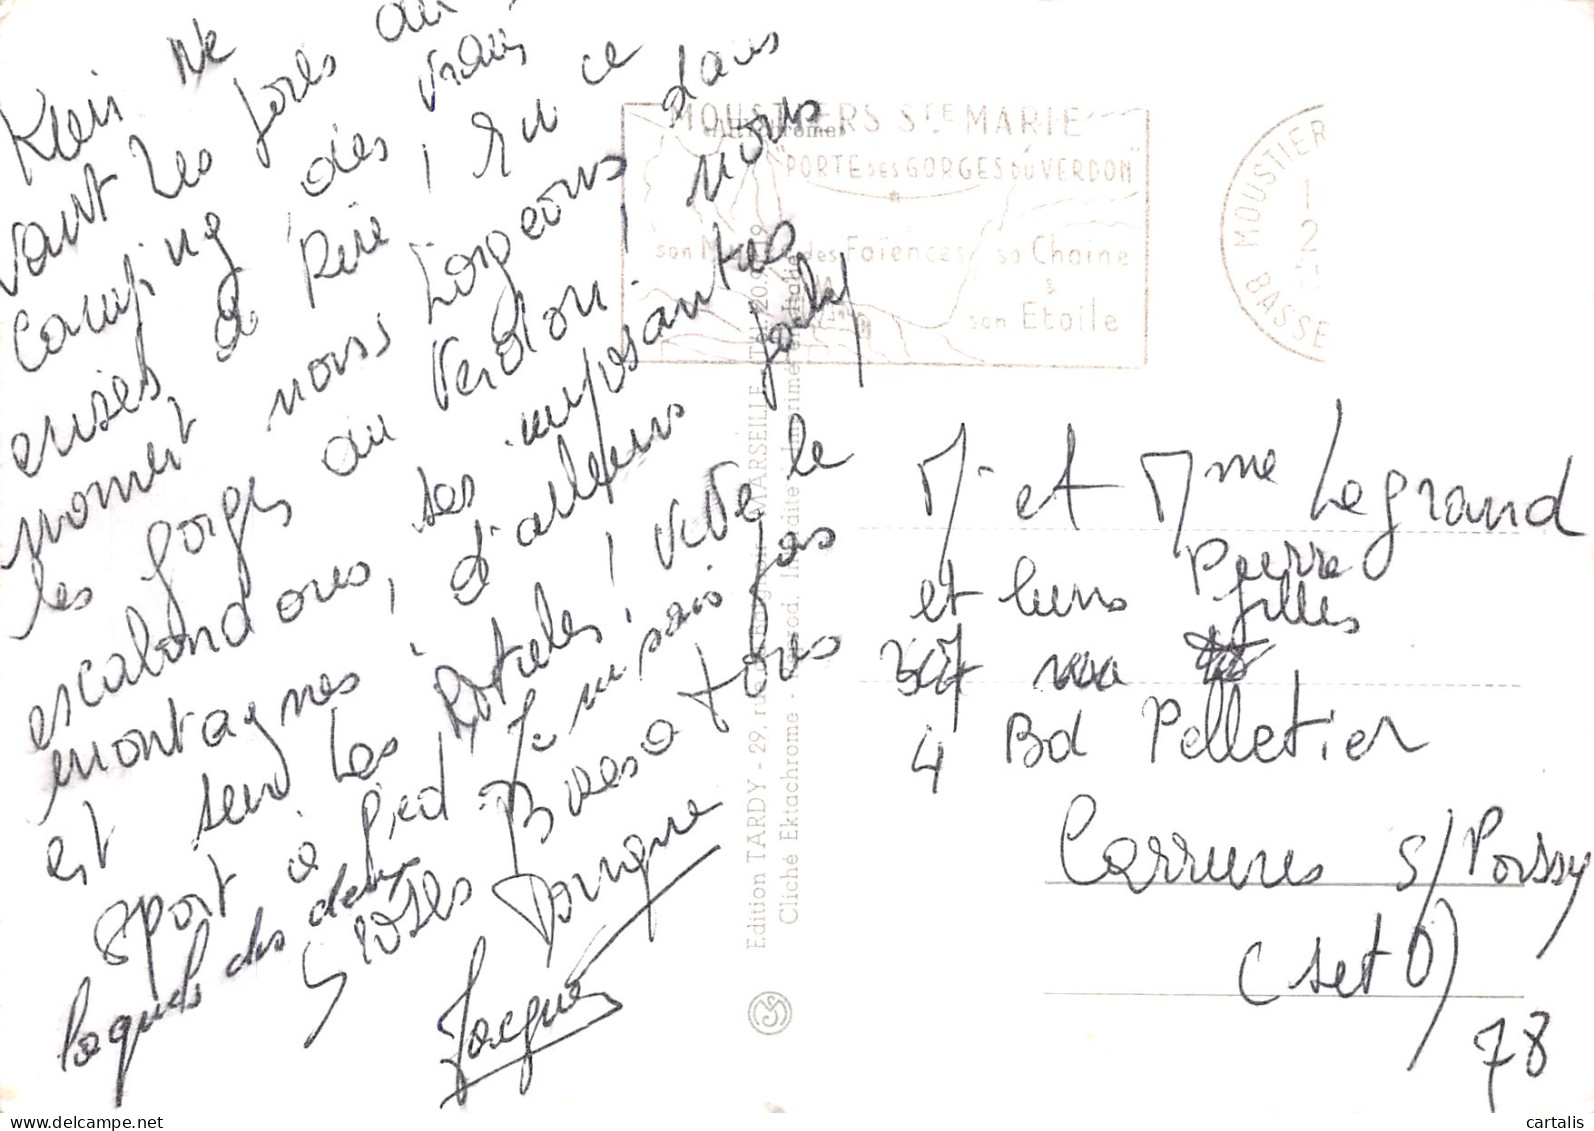 Klein Ne
vant les joies du
camping, des vraies
crises de rire ! En ce
moment nous longeons dans
les gorges du Verdon, nous
escaladons, ses imposantes
montagnes, d'ailleurs Jacky
est sur les rotules ! Vive le
sport à pied. Je ne sais pas
laquelle des deux
Grosses Bises à tous
Monique
Jacques
MOUSTIERS STE MARIE
"PORTE DES GORGES DU VERDON"
son Musée des Faïences sa Chaine
&
son Etoile
MOUSTIER
BASSE
Edition TARDY - 29, MARSEILLE
Cliché Ektachrome - Imprimé en Italie
Mr et Mme Legrand
et leurs Pierre
Gilles
4 Bd Pelletier
Carrières s/Poissy
(Set O)
78
delcampe.net
cartalis